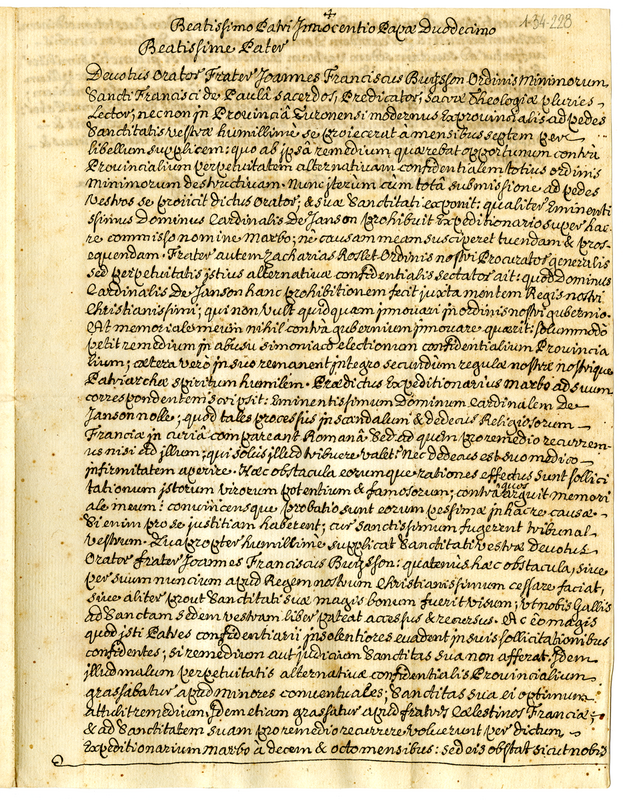 1-34-223
Beatissimo Patri Innocentio Papæ Duodecimo
Beatissime Pater
Devotus Orator Frater Joannes Franciscus Buisson Ordinis Minimorum
Sancti Francisci de Paulâ sacerdos, Predicator, sacræ Theologiæ pluries
Lector, necnon jn Provinciâ Turonensi modernus Exprovincialis ad pedes
Sanctitatis vestræ humillime se proiecerat a mensibus septem per
libellum supplicem: quo ab jpsâ remedium quærebat opportunum contrà
Provincialium perpetuitatem alternativam confidentialem totius ordinis
Minimorum destructivam. Nunc jterùm cum totâ submissione ad pedes
Vestros se proiicit dictus Orator; & suæ Sanctitati exponit: qualiter Eminenti
ssimus Dominus Cardinalis de Janson prohibuit Expeditionario super hac
re commisso nomine Marbo; nè causam meam susciperet tuendam & pros-
equendam. Frater autem Zacharias Roslet Ordinis nostri Procurator generalis
sed perpetuitatis jstius alternativæ confidentialis sectator ait: quod Dominus
Cardinalis de Janson hanc prohibitionem fecit juxta mentem Regis nostri
Christianissimi; qui non vult quidquam jnnovari jn ordinis nostri gubernio.
At memoriale meum nihil contrà gubernium jnnovare quærit: solummodò
petit remedium jn abusu simoniaco electionum confidentialium Provincia
lium; cætera verò jn suo remanent jntegro secundùm regulæ nostræ nostrique
Patriarchæ spiritum humilem. Prædictus Expeditionarius Marbo ad suum
correspondentem scripsit: Eminentissimum Dominum Cardinalem de
Janson nolle; quod tales processus jn scandalum & dedecus Religiosorum
Franciæ jn curiâ compareant Romanâ. Sed ad quem pro remedio recurrem-
us nisi ad jllum; qui solus jllud tribuere valet? Nec dedecus est suo medico
jnfirmitatem aperire. Hæc obstacula eorumque rationes effectus sunt sollici
tationum jstorum virorum potentium & famosorum; contrà quos arguit memori
ale meum: convincensque probatio sunt eorum pessimæ jn hâc re causæ.
Si enim pro se justitiam haberent; cur sanctissimum fugerent tribunal
vestrum. Quapropter humillimè supplicat Sanctitati vestræ devotus
Orator frater Joannes Franciscus Buisson: quatenùs hæc obstacula, sive
per suum nuncium apud Regem nostrum Christianissimum cessare faciat,
sive aliter prout Sanctitati suæ magis bonum fuerit visum; ut nobis Gallis
ad Sanctam sedem vestram liber pateat accessus & recursus. Ac eò magis
quod jsti Patres confidentiarii jnsolentiores evadent jn suis sollicitationibus
confidentes; si remedium aut judicium Sanctitas sua non afferat. Jdem
jllud malum perpetuitatis alternativæ confidentialis Provincialium
grassabatur apud Minores conventuales; Sanctitas sua ei optimum
attulit remedium. Jdem etiam grassatur apud fratres Cælestinos Franciæ:
& ad Sanctitatem suam pro remedio recurrere voluerunt per dictum
Expeditionarium Marbo à decem & octo mensibus: sed eis obstat sicut nobis